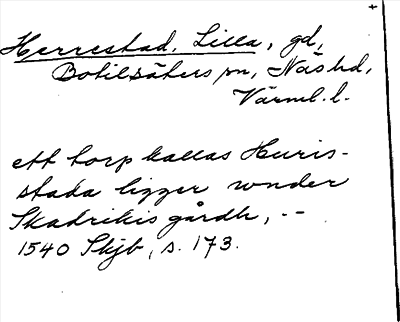 Herrestad, Lilla, gd,
Botilsäters sn, Näs hd,
Värml. l.
ett torp kallas Huris-
stada ligger wnder
Skadrikis gårdh, --
1540 Skjb, s. 173.